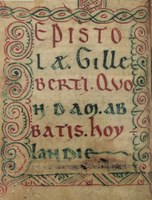 EPISTO
LÆ. GILLE
BERTI. QUO
NDAM. AB
BATIS. HOY
LANDIE